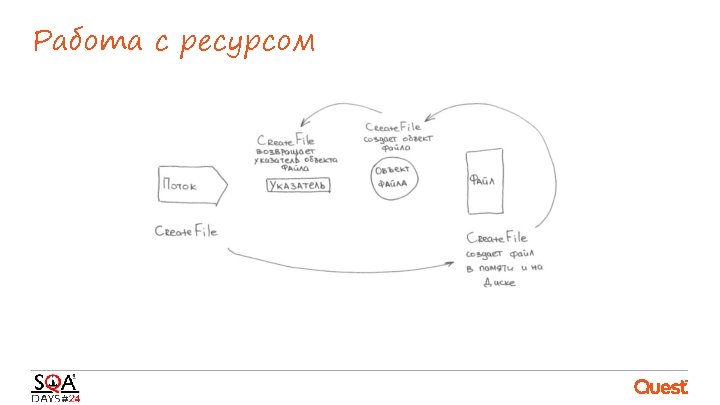 Работа с ресурсом
CreateFile
возвращает
указатель объекта
файла
CreateFile
создает объект
файла
Поток
Указатель
Объект
файла
Файл
CreateFile
CreateFile
создает файл
в памяти и на
диске
SQA
DAYS#24
Quest